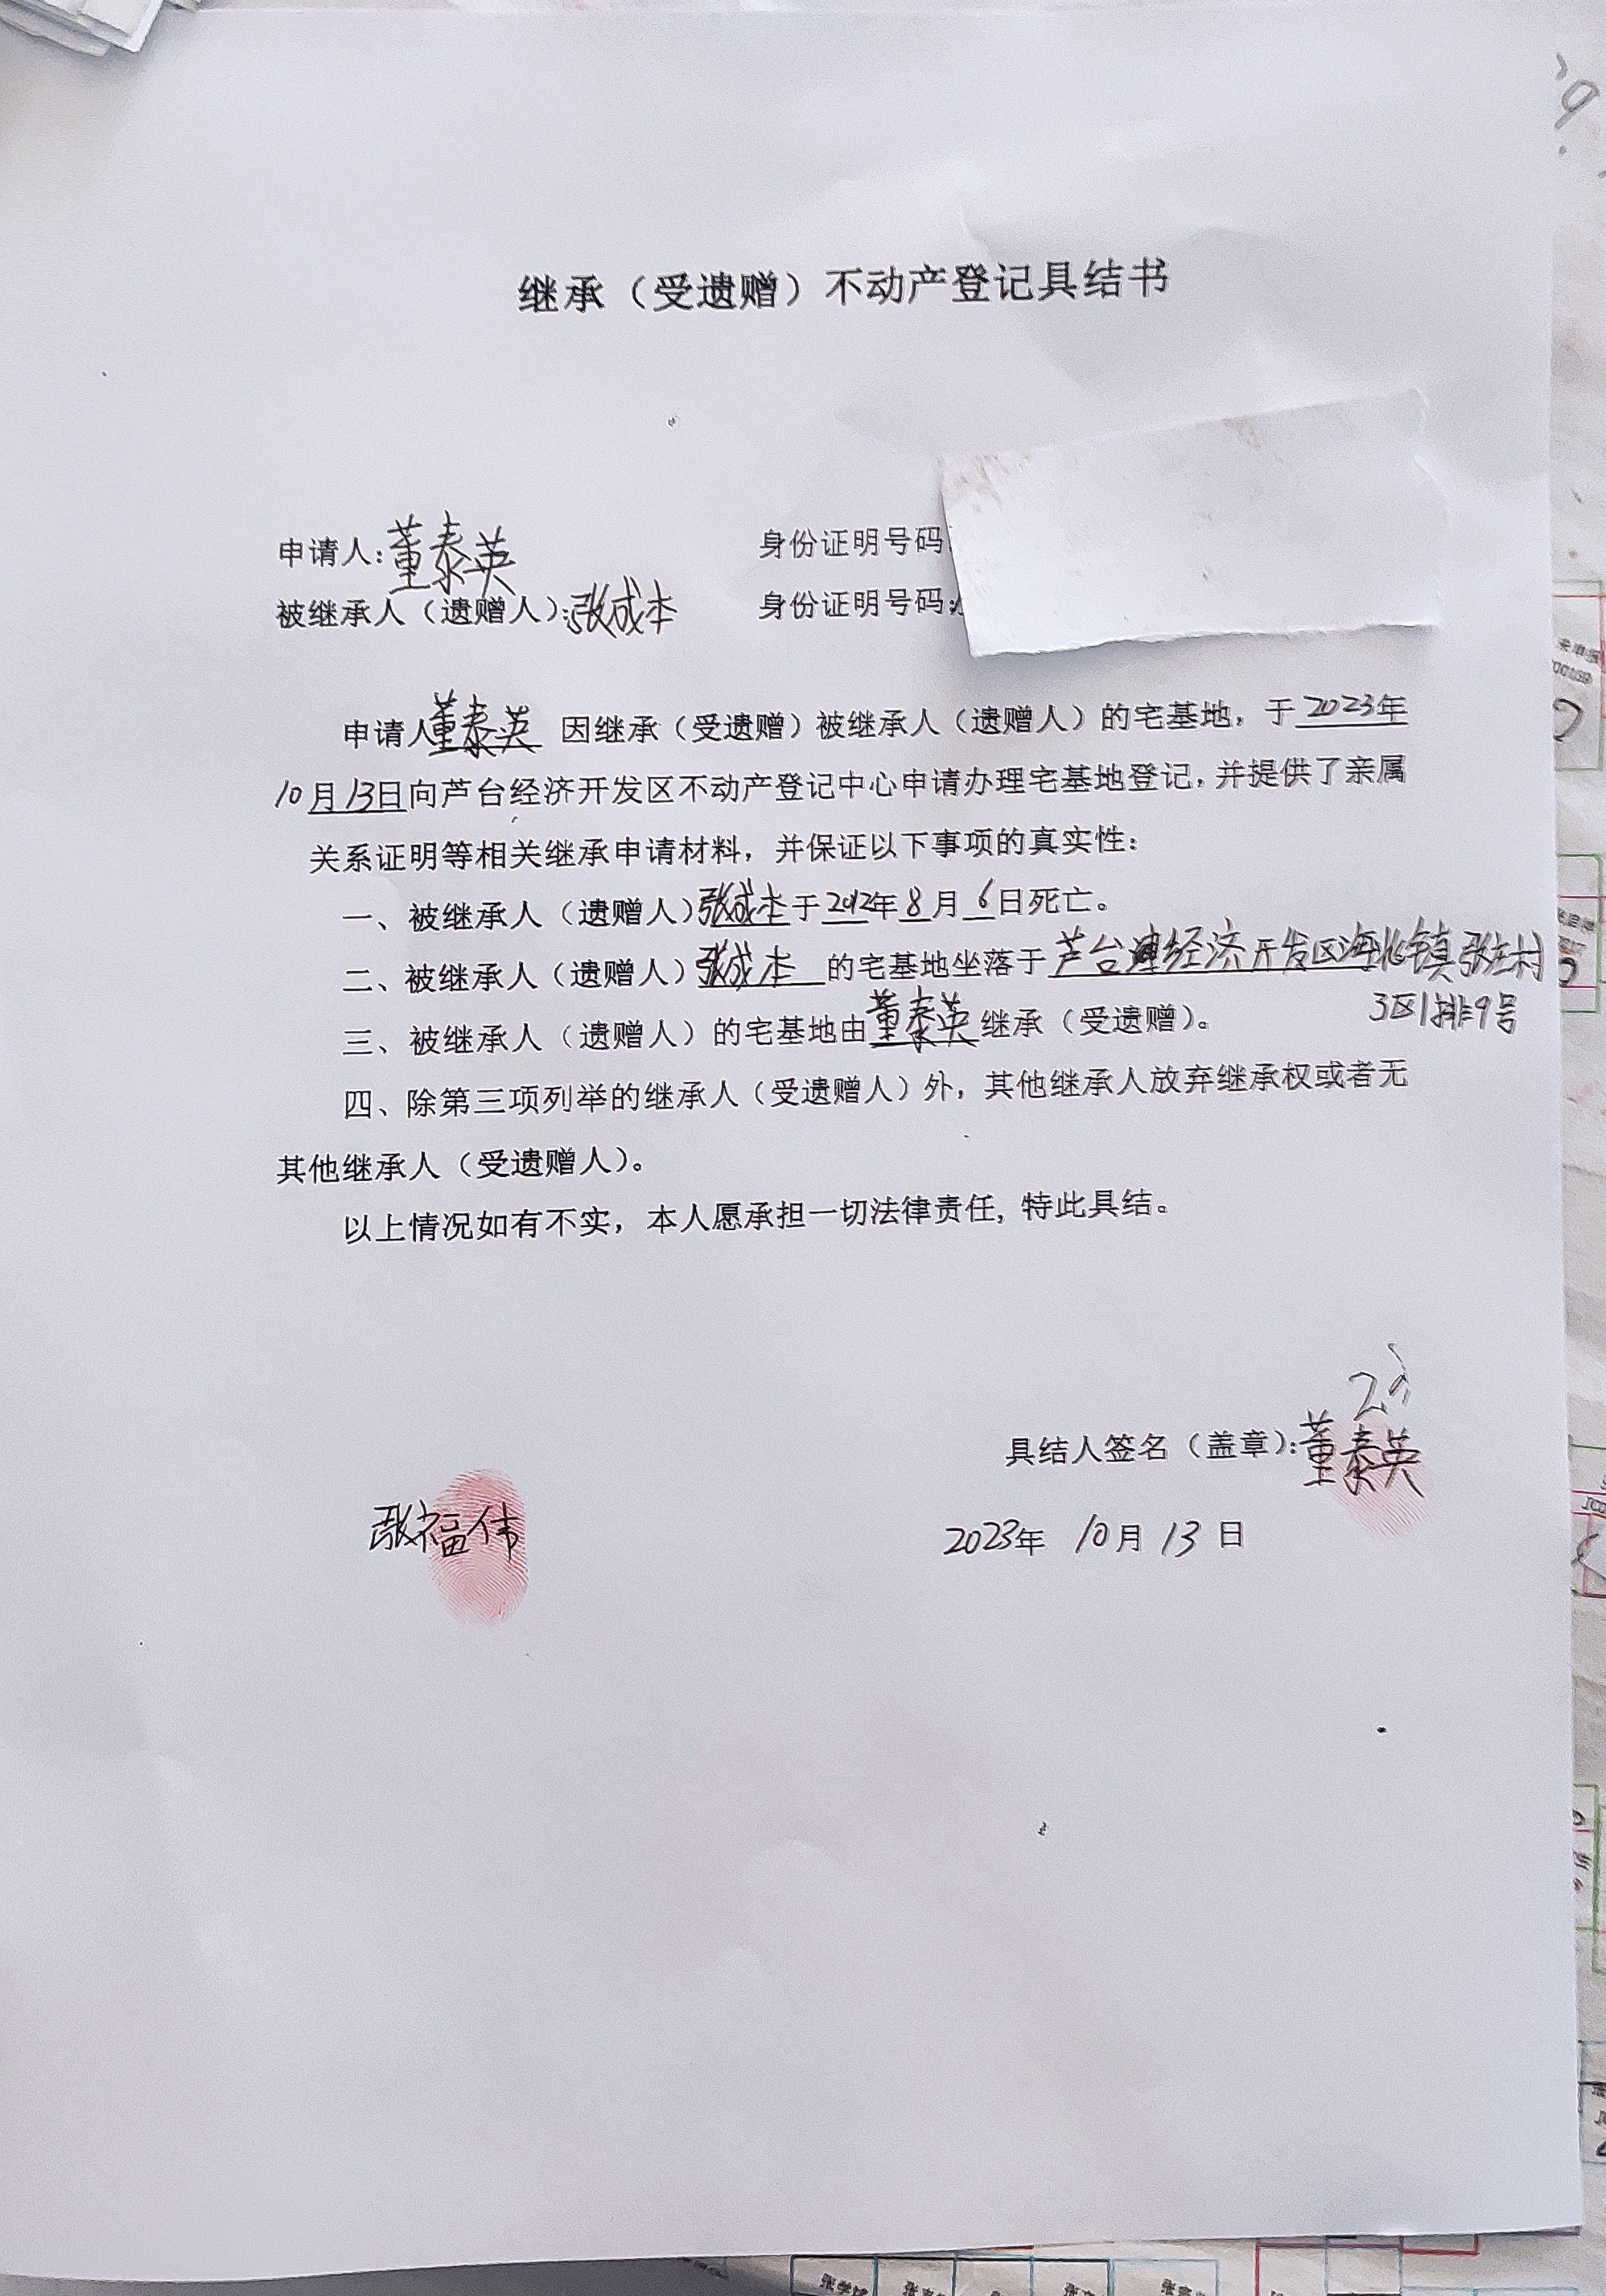 继承（受遗赠）不动产登记具结书
申请人:董泰英 身份证明号码:
被继承人（遗赠人）:张成本 身份证明号码:
申请人董泰英 因继承（受遗赠）被继承人（遗赠人）的宅基地，于2023年
10月13日向芦台经济开发区不动产登记中心申请办理宅基地登记，并提供了亲属
关系证明等相关继承申请材料，并保证以下事项的真实性：
一、被继承人（遗赠人）张成本于2012年8月6日死亡。
二、被继承人（遗赠人）张成本的宅基地坐落于芦台经济开发区海北镇张庄村
3区1排9号
三、被继承人（遗赠人）的宅基地由董泰英继承（受遗赠）。
四、除第三项列举的继承人（受遗赠人）外，其他继承人放弃继承权或者无
其他继承人（受遗赠人）。
以上情况如有不实，本人愿承担一切法律责任, 特此具结。
具结人签名（盖章）：董泰英
张福伟
2023年 10月 13 日